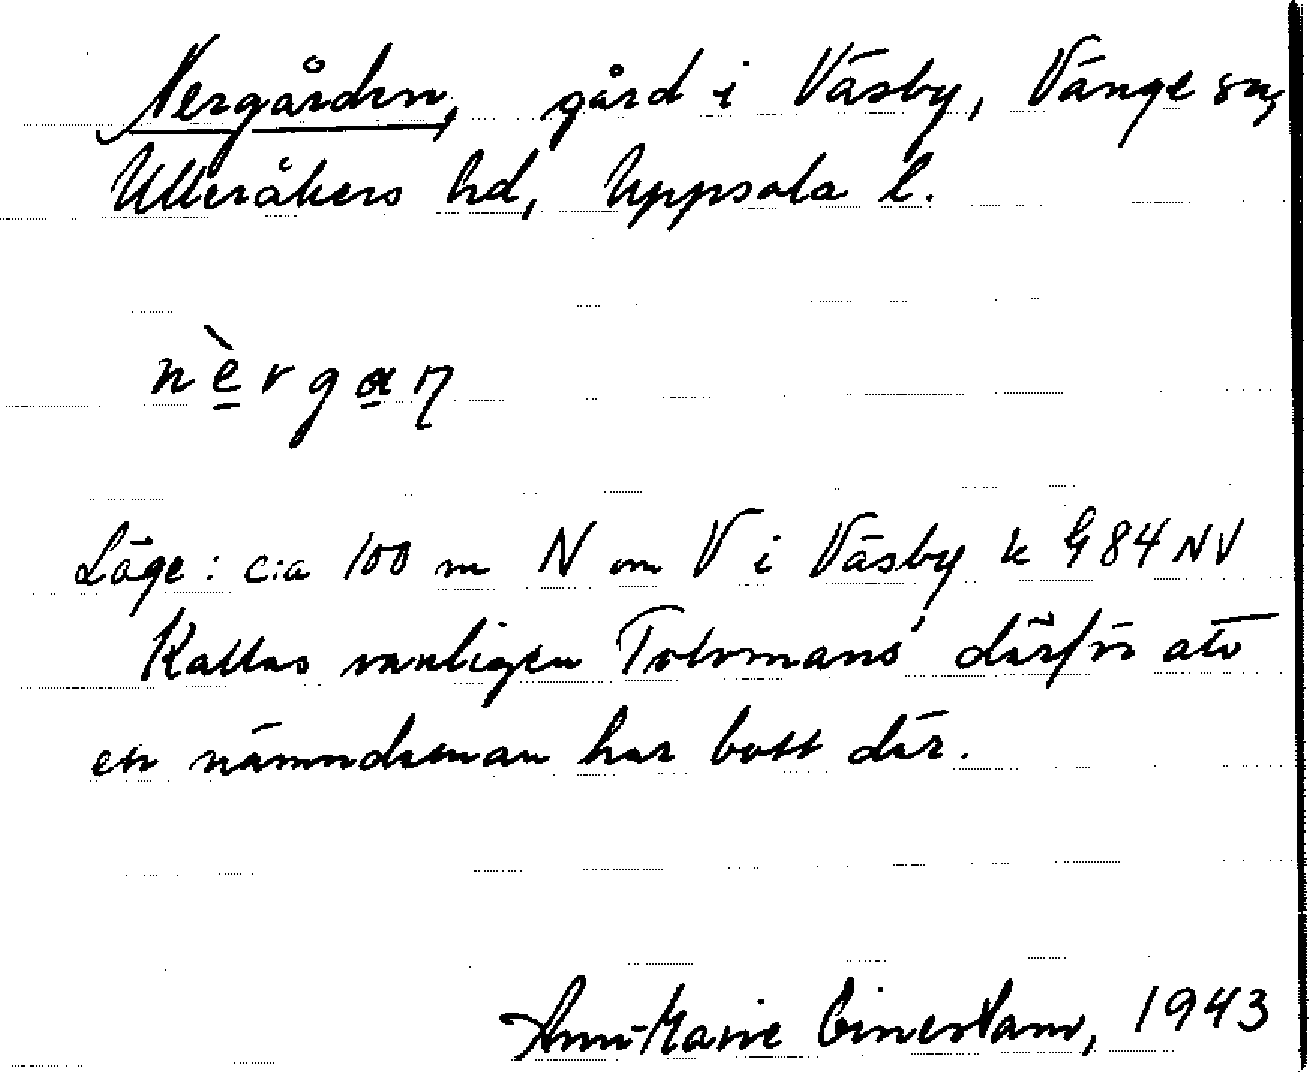 Nergården, gård i Väsby, Vänge sn,
Ulleråkers hd, Uppsala l.
nè̱rga̱ɳ
Läge: c:a 100 m N om V i Väsby k G 84 NV
Kallas vanligen Tolvmans' därför att
en nämndeman har bott där.
Ann-Marie 1943